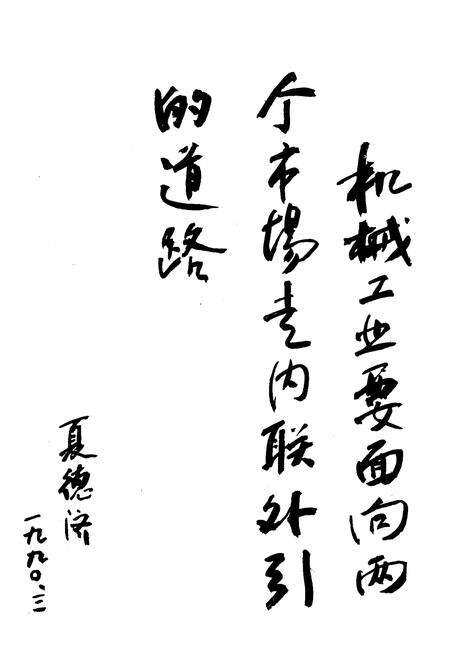 机械工业要面向两
个市場走内联外引
的道路
夏德济
一九九〇.三